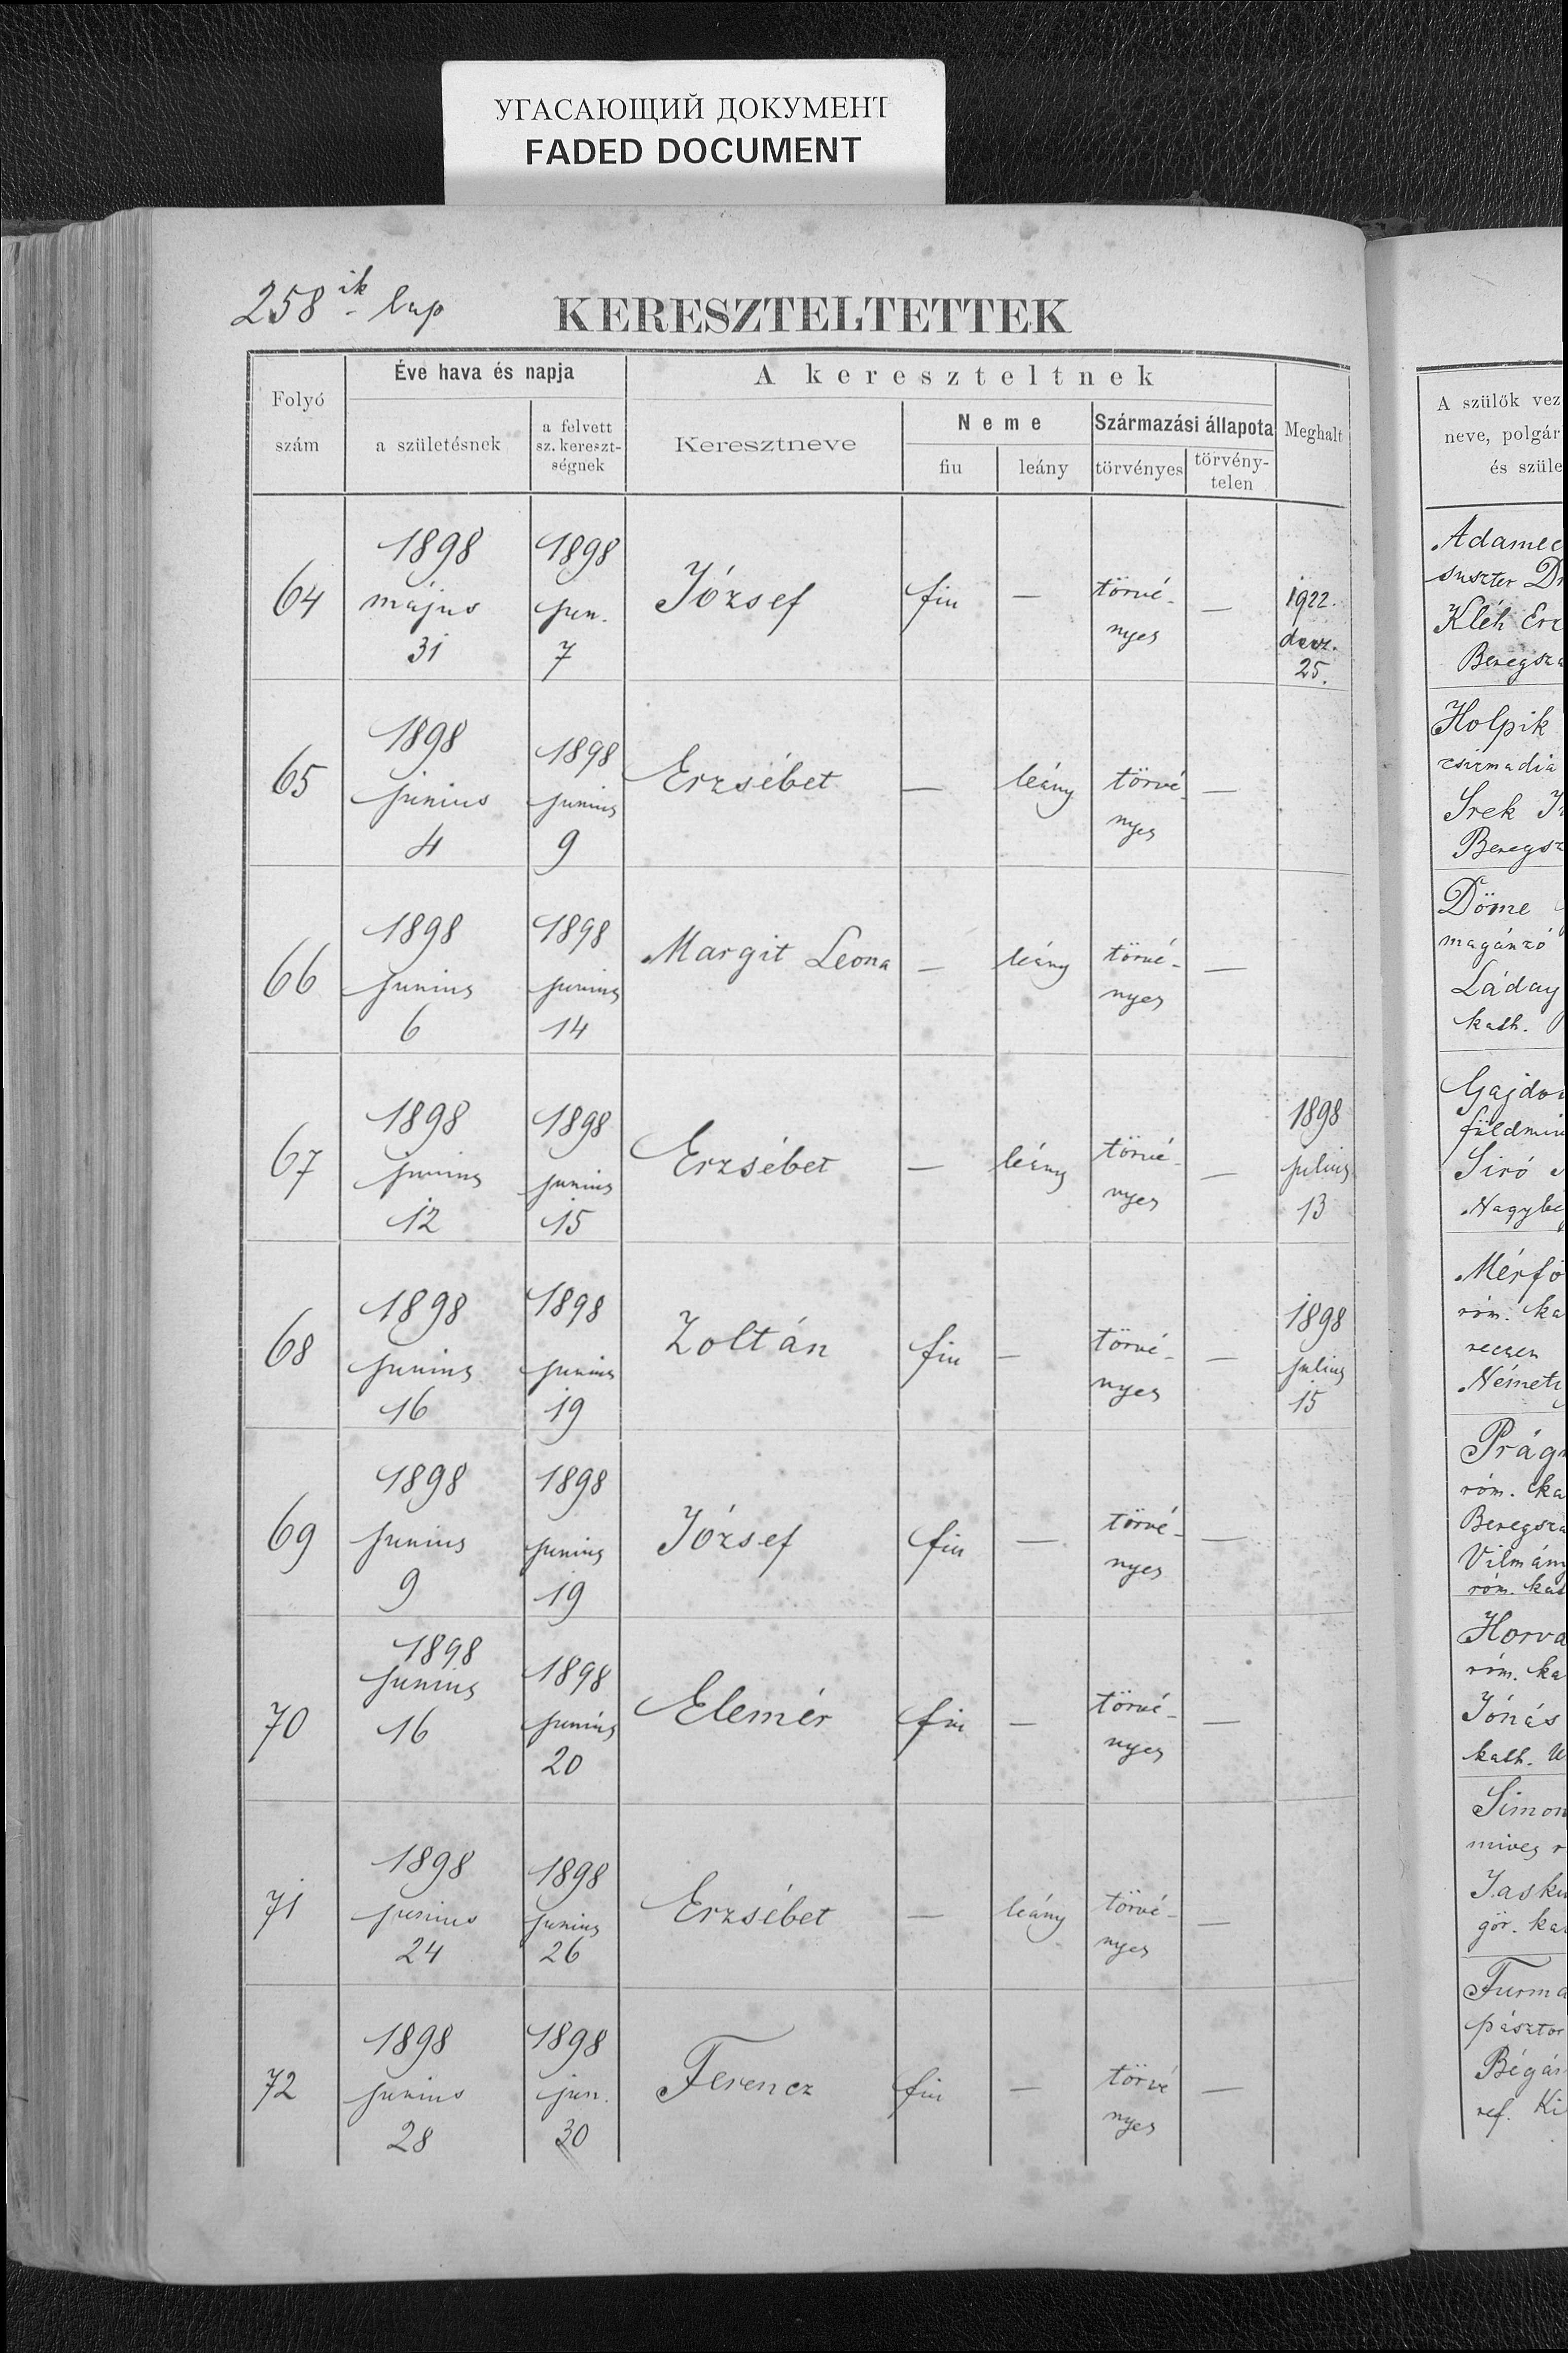 УГАСАЮЩИЙ ДОКУМЕНТ
FADED DOCUMENT
258ik lap
KERESZTELTETTEK
Folyó szám
Éve hava és napja
a születésnek
a felvett sz. kereszt-ségnek
A kereszteltnek
Keresztneve
Neme
fiu
leány
Származási állapota
törvényes
törvény-telen
Meghalt
64 1898 május 31 1898 jun. 7 József fiu — törvé-nyes — 1922. decz. 25.
65 1898 junius 4 1898 junius 9 Erzsébet — leány törvé-nyes —
66 1898 junius 6 1898 junius 14 Margit Leona — leány törvé-nyes —
67 1898 junius 12 1898 junius 15 Erzsébet — leány törvé-nyes — 1898 julius 13
68 1898 junius 16 1898 junius 19 Zoltán fiu — törvé-nyes — 1898 julius 15
69 1898 junius 9 1898 junius 19 József fiu — törvé-nyes —
70 1898 junius 16 1898 junius 20 Elemér fiu — törvé-nyes —
71 1898 junius 24 1898 junius 26 Erzsébet — leány törvé-nyes —
72 1898 junius 28 1898 jun. 30 Ferencz fiu — törvé nyes —
A szülők vez
neve, polgár
és szüle
Adamec
suszter
Kléh Erz
Beregsza
Holpik
csizmadia
Srek
Beregsz
Döme
magánzó
Láday
kath.
Gajdos
földmiv
Siró
Nagybe
Mérfö
róm. ka
Németi
Prág
róm. ka
Beregsza
Vilmány
róm. kat
Horvá
róm. ka
Jónás
kath. U
Simon
mives r
Jasku
gör. ka
Furma
pásztor
Bégán
ref. Ki